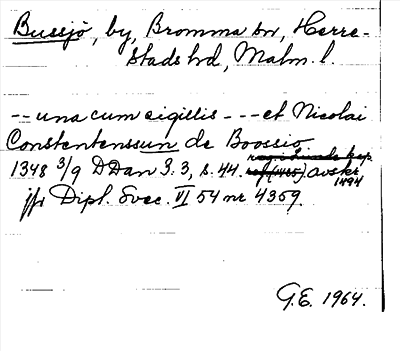 Bussjö, by, Bromma sn, Herre-
stads hd, Malm. l.
-- una cum sigillis --- et Nicolai
Constentenssun de Boossio
1348 3/9 DDan 3.3, s. 44. avskr
1494
jfr Dipl. Svec. VI 54 nr 4359.
G.E. 1964.